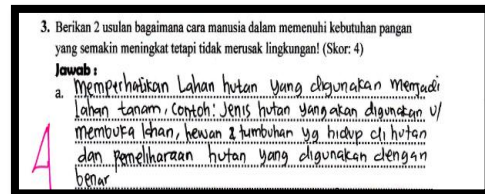 3. Berikan 2 usulan bagaimana cara manusia dalam memenuhi kebutuhan pangan
yang semakin meningkat tetapi tidak merusak lingkungan! (Skor: 4)
Jawab :
a. Memperhatikan Lahan hutan yang digunakan menjadi
lahan tanam, contoh: Jenis hutan yang akan digunakan u/
membuka lahan, hewan & tumbuhan yg hidup di hutan
dan pemeliharaan hutan yang digunakan dengan
benar
4